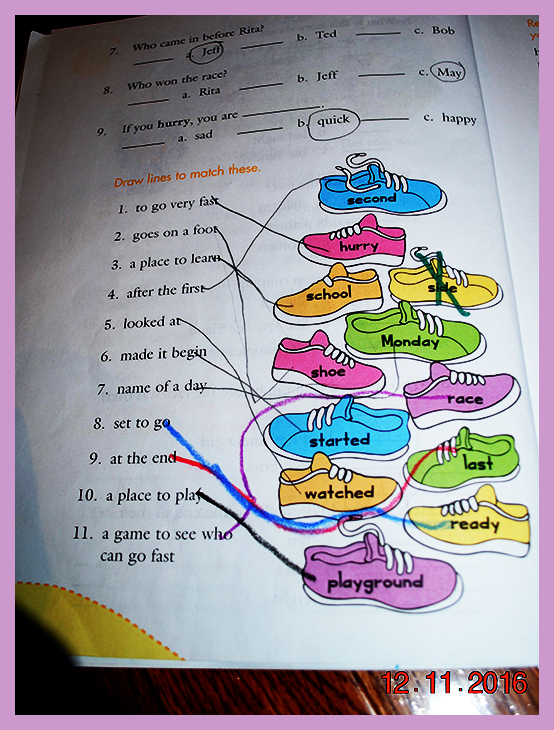 7. Who came in before Rita?
a. Jeff b. Ted c. Bob
8. Who won the race?
a. Rita b. Jeff c. May
9. If you hurry, you are
a. sad b. quick c. happy
Draw lines to match these.
1. to go very fast
2. goes on a foot
3. a place to learn
4. after the first
5. looked at
6. made it begin
7. name of a day
8. set to go
9. at the end
10. a place to play
11. a game to see who
can go fast
second
hurry
school
side
Monday
shoe
race
started
last
watched
ready
playground
12.11.2016